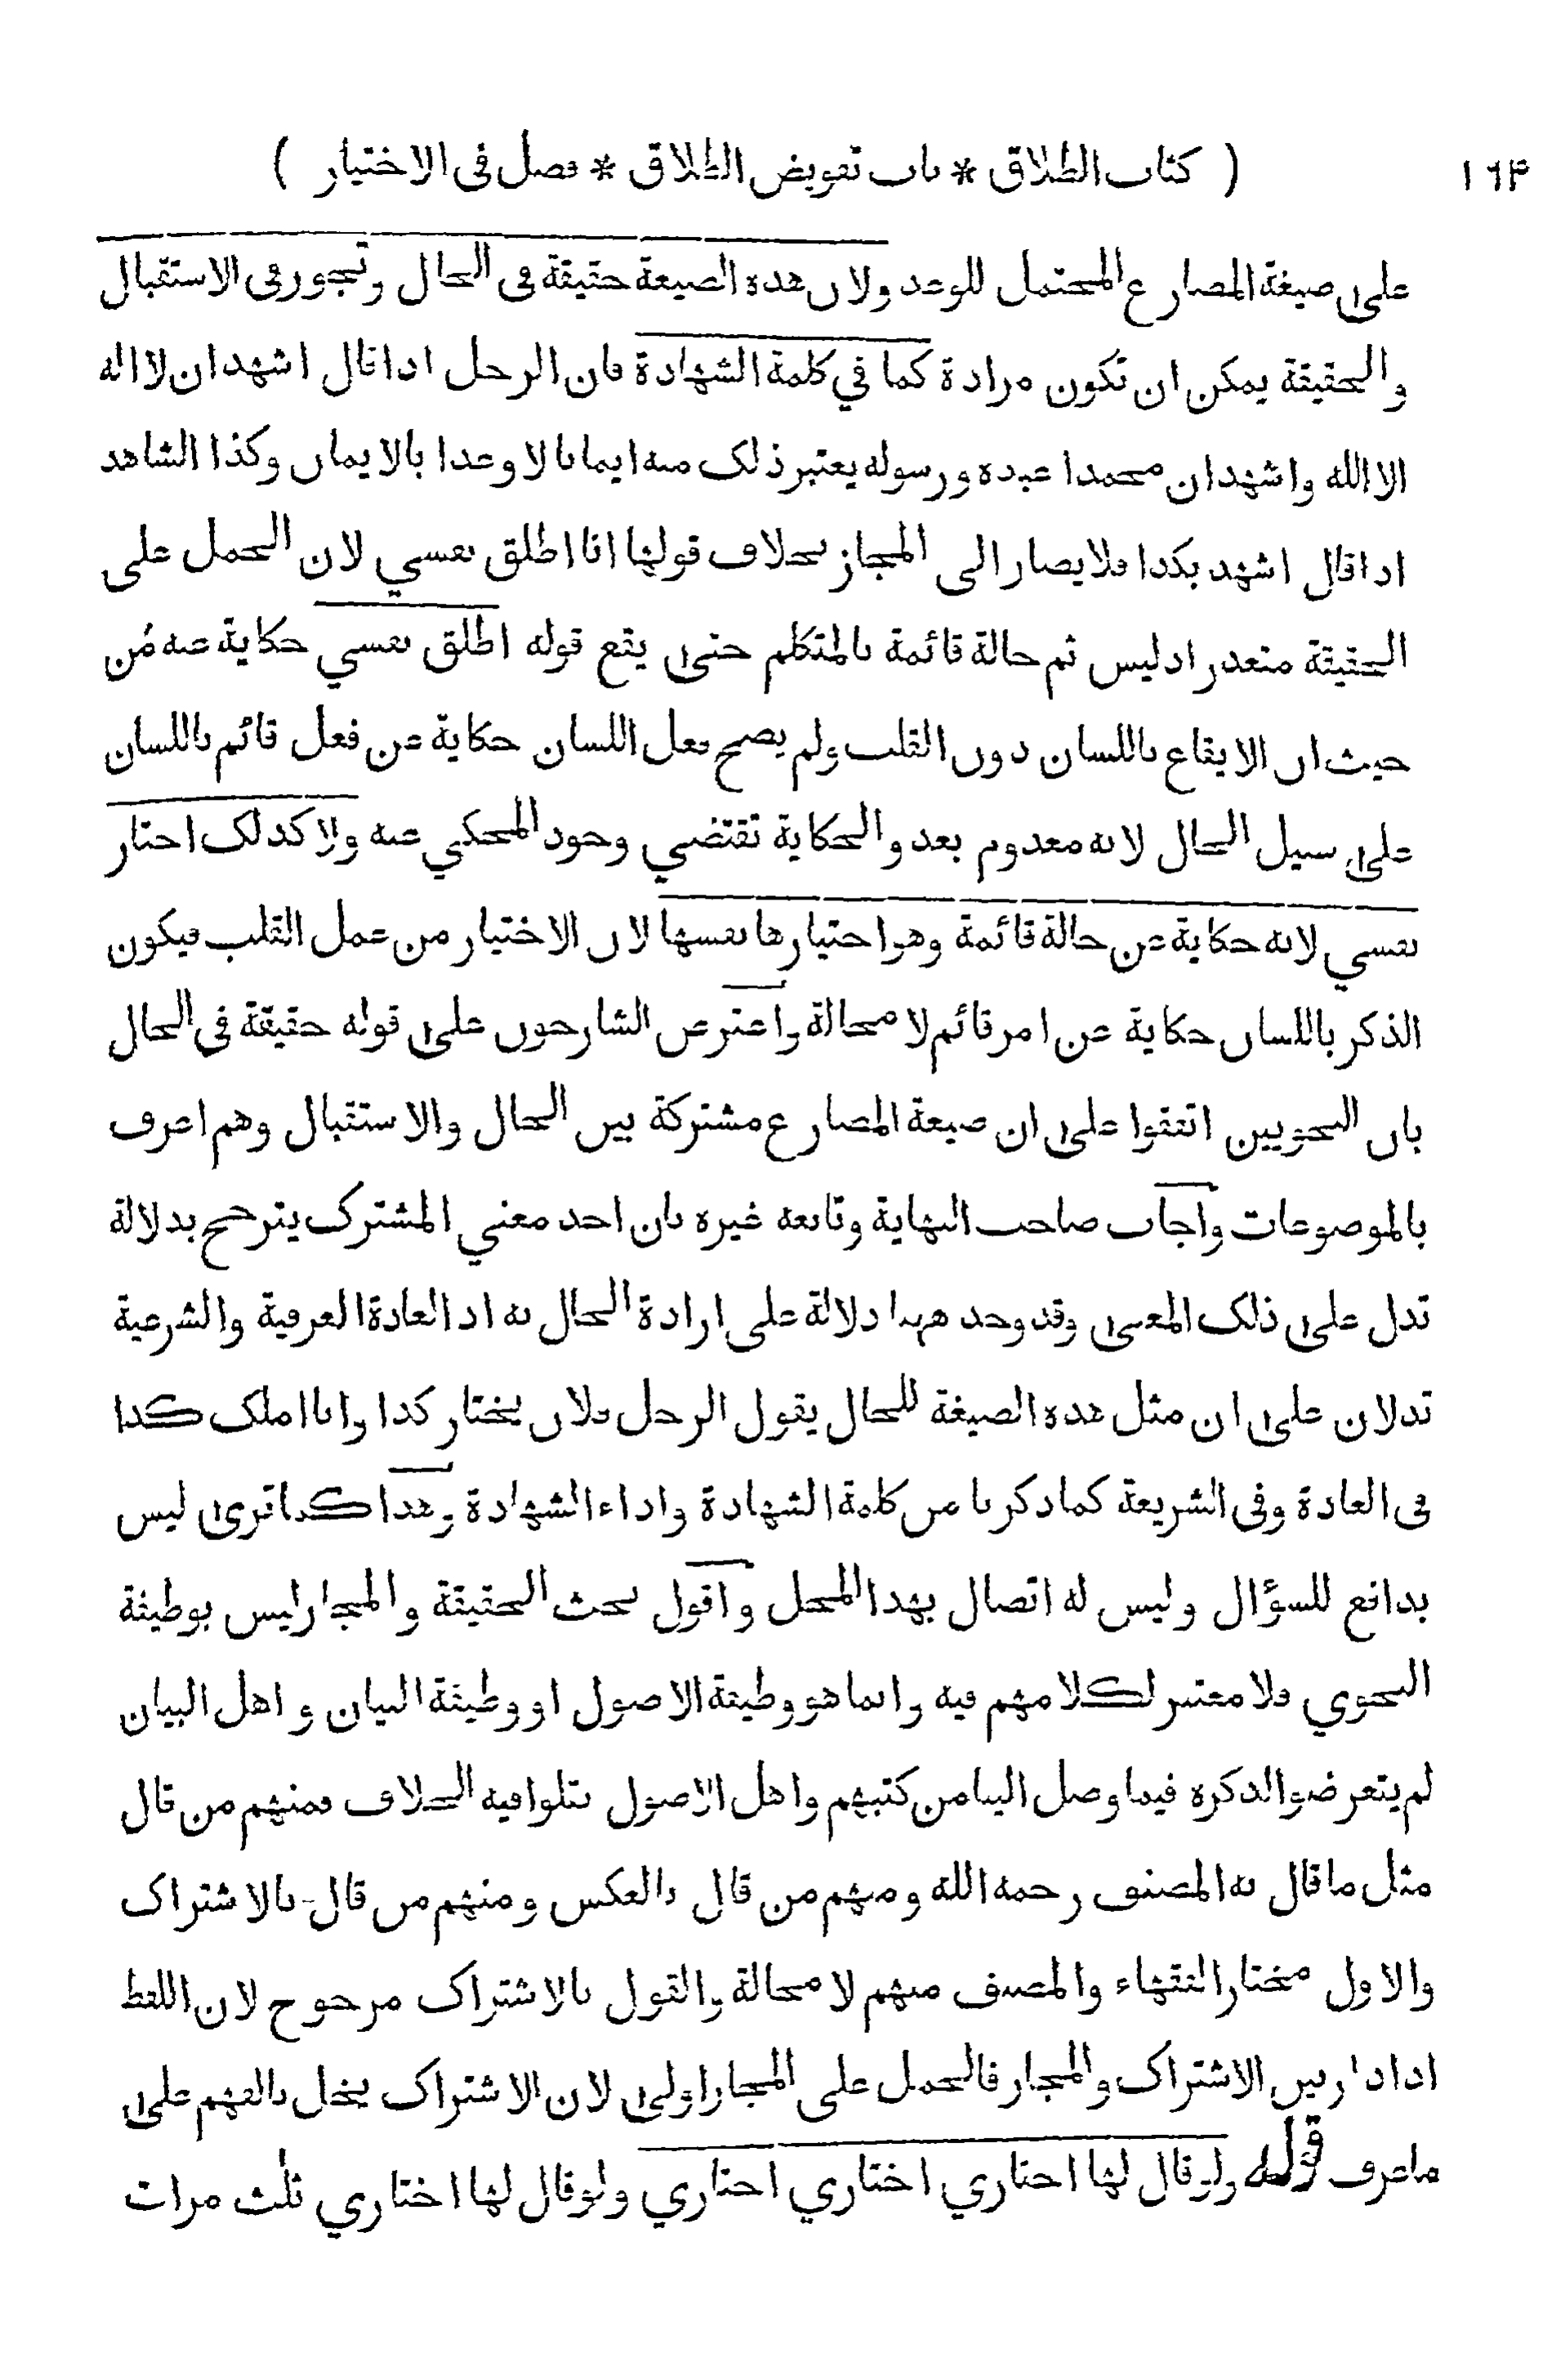 ( كتاب الطلاق * باب تفويض الطلاق * فصل فى الاختيار ) ١٦٣
على صيغة المضارع المحتمل للوعد ولان هذه الصيغة حقيقة فى الحال وتجوز فى الاستقبال
والحقيقة يمكن ان تكون مرادة كما في كلمة الشهادة فان الرجل اذا قال اشهد ان لا اله
الا الله واشهد ان محمدا عبده ورسوله يعتبر ذلك منه ايمانا لا وعدا بالايمان وكذا الشاهد
اذا قال اشهد بكذا فلا يصار الى المجاز بخلاف قولها انا اطلق نفسي لان الحمل على
الحقيقة متعذر اذ ليس ثم حالة قائمة بالمتكلم حتى يقع قوله اطلق نفسي حكاية عنه من
حيث ان الايقاع باللسان دون القلب ولم يصح فعل اللسان حكاية عن فعل قائم باللسان
على سبيل الحال لانه معدوم بعد والحكاية تقتضي وجود المحكي عنه ولا كذلك اختار
نفسي لانه حكاية عن حالة قائمة وهو اختيارها نفسها لان الاختيار من عمل القلب فيكون
الذكر باللسان حكاية عن امر قائم لا محالة واعترض الشارحون على قوله حقيقة فى الحال
بان النحويين اتفقوا على ان صيغة المضارع مشتركة بين الحال والاستقبال وهم اعرف
بالموضوعات واجاب صاحب النهاية وتابعه غيره بان احد معني المشترك يترجح بدلالة
تدل على ذلك المعنى وقد وجد ههنا دلالة على ارادة الحال به اذ العادة العرفية والشرعية
تدلان على ان مثل هذه الصيغة للحال يقول الرجل فلان يختار كذا وانا املك كذا
فى العادة وفى الشريعة كما ذكرنا من كلمة الشهادة واداء الشهادة وهذا كما ترى ليس
بدافع للسؤال وليس له اتصال بهذا المحل واقول بحث الحقيقة والمجاز ليس بوظيفة
النحوي فلا معتبر لكلامهم فيه وانما هو وظيفة الاصول او وظيفة البيان واهل البيان
لم يتعرضوا لذكره فيما وصل الينا من كتبهم واهل الاصول نقلوا فيه الخلاف فمنهم من قال
مثل ما قال به المصنف رحمه الله ومنهم من قال بالعكس ومنهم من قال بالاشتراك
والاول مختار الفقهاء والمصنف منهم لا محالة والقول بالاشتراك مرجوح لان اللفظ
اذا دار بين الاشتراك والمجاز فالحمل على المجاز اولى لان الاشتراك يخل بالفهم على
ما عرف قوله ولو قال لها اختاري اختاري اختاري ولو قال لها اختاري ثلث مرات